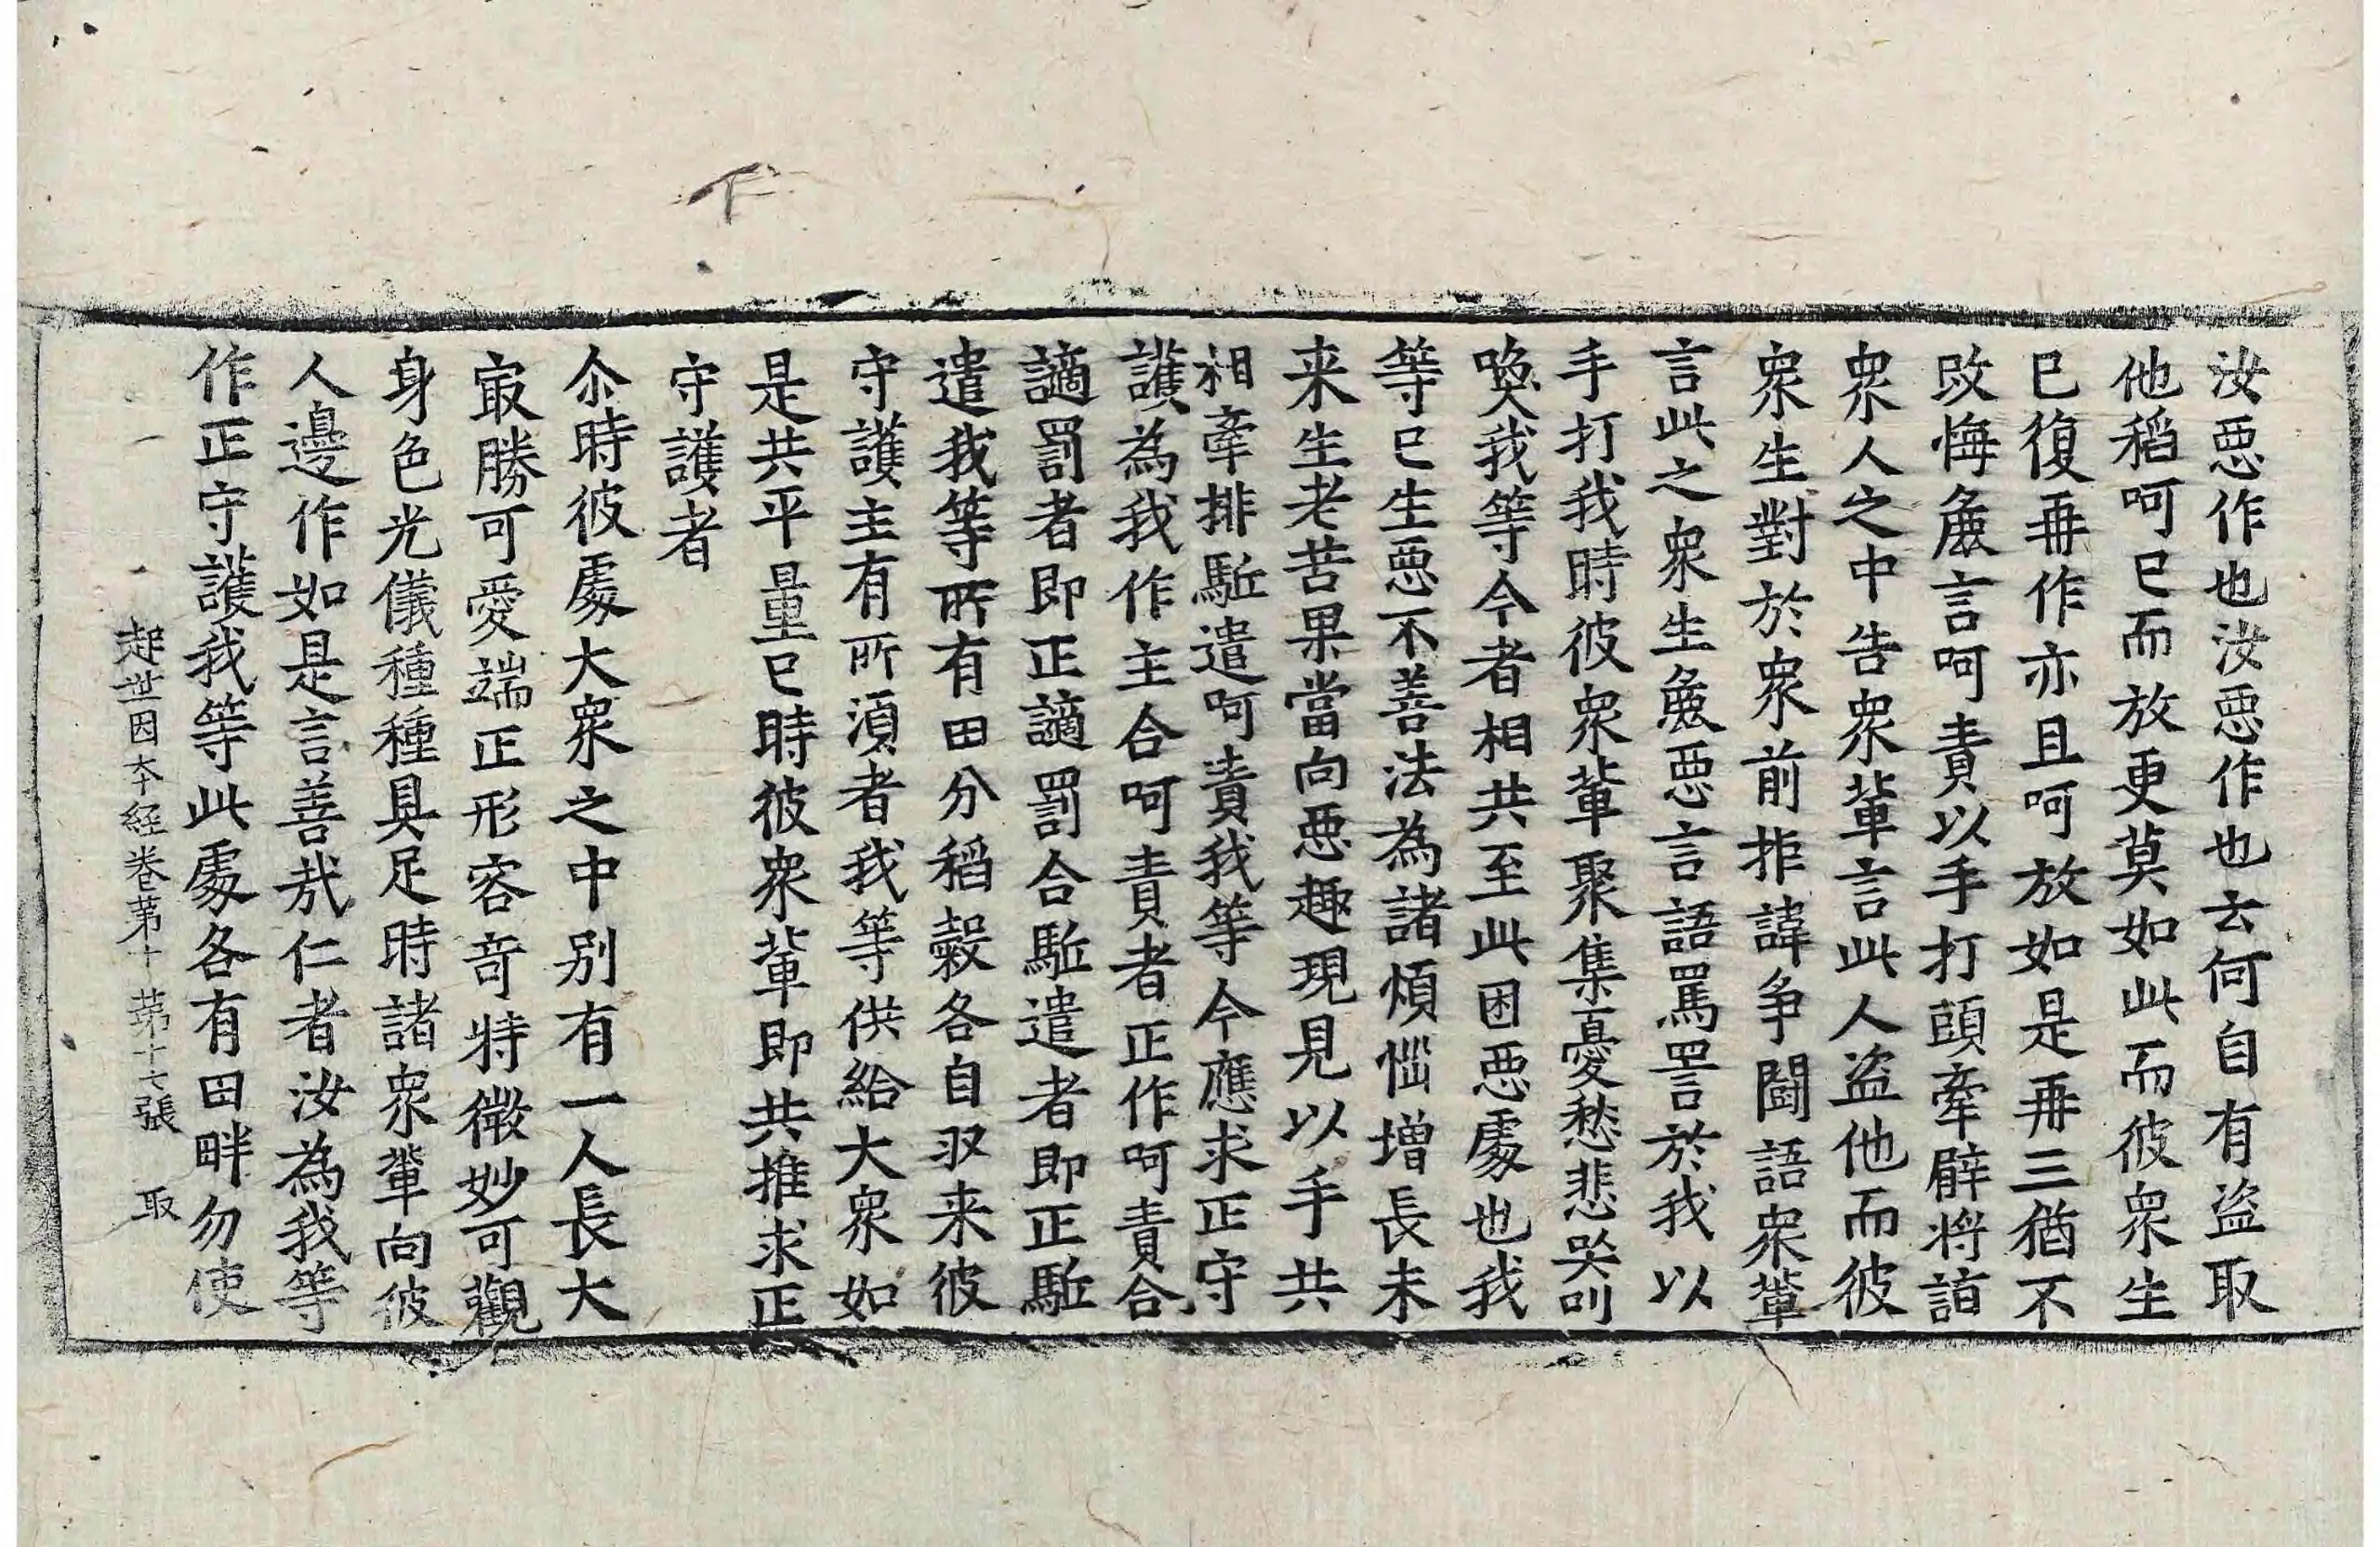 汝惡作也汝惡作也云何自有盜取
他稻呵已而放更莫如此而彼衆生
已復再作亦且呵放如是再三猶不
改悔麁言呵責以手打頭牽臂將詣
衆人之中告衆輩言此人盜他而彼
衆生對於衆前拒諱爭鬪語衆輩
言此之衆生麁惡言語罵詈於我以
手打我時彼衆輩聚集憂愁悲哭叫
喚我等今者相共至此困惡處也我
等已生惡不善法為諸煩惱增長未
来生老苦果當向惡趣現見以手共
相牽排駈遣呵責我等今應求正守
護為我作主合呵責者正作呵責合
讁罰者即正讁罰合駈遣者即正駈
遣我等所有田分稻穀各自収来彼
守護主有所湏者我等供給大衆如
是共平量已時彼衆輩即共推求正
守護者
尒時彼處大衆之中别有一人長大
㝡勝可愛端正形容竒特微妙可觀
身色光儀種種具足時諸衆輩向彼
人邊作如是言善哉仁者汝為我等
作正守護我等此處各有田畔勿使
起世因本經卷第十 第十七張 取